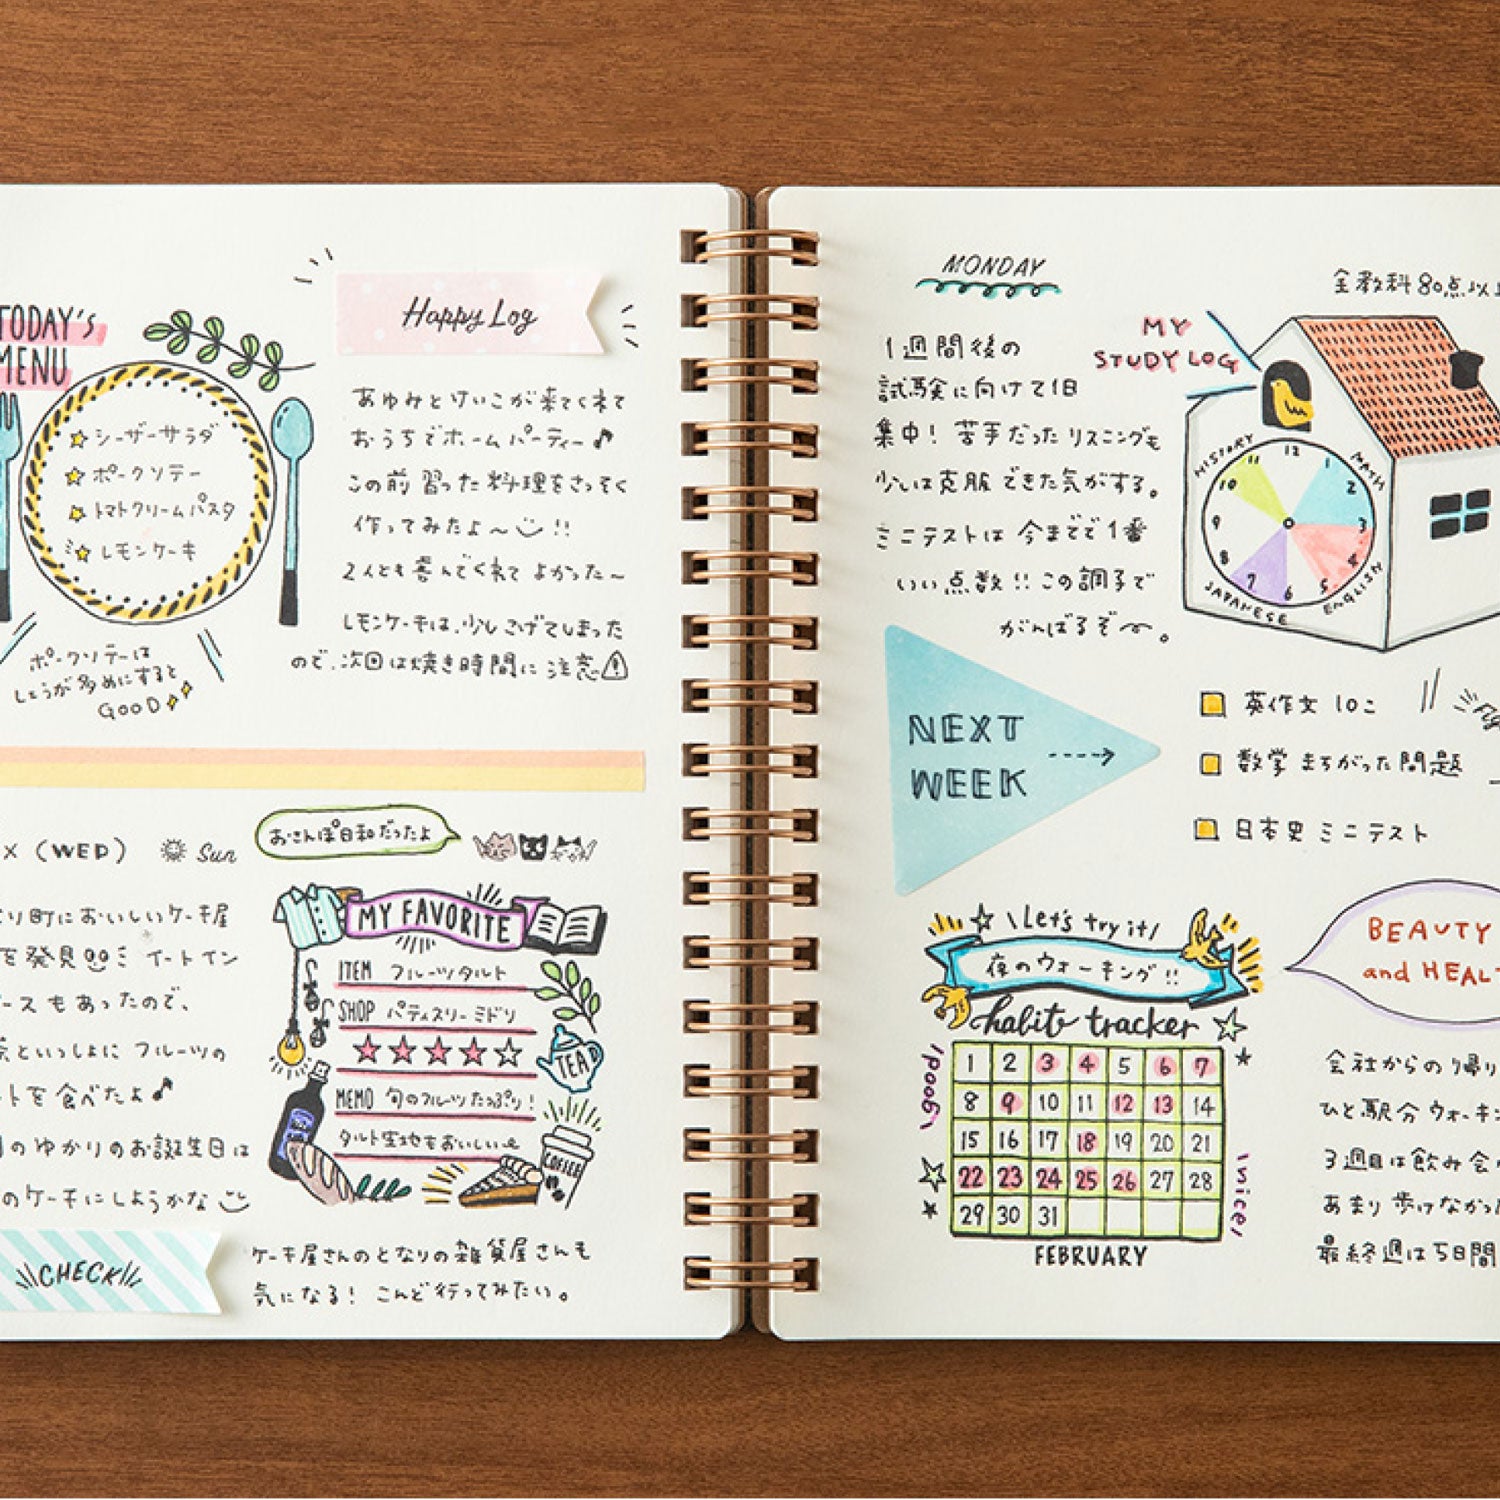 TODAY'S
MENU
シーザーサラダ
ポークソテー
トマトクリームパスタ
レモンケーキ
ポークソテーは
しょうが多めにすると
GOOD
Happy Log
あゆみとけいこが来てくれて
おうちでホームパーティー♪
この前習った料理をさっそく
作ってみたよ〜!!
2人とも喜んでくれてよかった〜
レモンケーキは、少しこげてしまった
ので、次回は焼き時間に注意
(WED) Sun
おさんぽ日和だったよ
町においしいケーキ屋
を発見 イートイン
スもあったので、
といっしょにフルーツの
トを食べたよ♪
のゆかりのお誕生日は
のケーキにしようかな
MY FAVORITE
ITEM フルーツタルト
SHOP パティスリーミドリ
★★★★☆
TEA
MEMO 旬のフルーツたっぷり!
タルト生地もおいしい
COFFEE
CHECK!
ケーキ屋さんのとなりの雑貨屋さんも
気になる! こんど行ってみたい。
MONDAY
1週間後の
試験に向けて1日
集中! 苦手だったリスニングも
少しは克服できた気がする。
ミニテストは今までで1番
いい点数!! この調子で
がんばるぞ〜。
全教科80点以
MY
STUDY LOG
HISTORY
MATH
ENGLISH
JAPANESE
12
1
2
3
4
5
6
7
8
9
10
11
NEXT
WEEK
英作文10こ
数学まちがった問題
日本史ミニテスト
\Let's try it/
夜のウォーキング!!
habit tracker
1 2 3 4 5 6 7
8 9 10 11 12 13 14
15 16 17 18 19 20 21
22 23 24 25 26 27 28
29 30 31
FEBRUARY
/good/
\nice/
BEAUTY
and HEAL
会社からの帰り
ひと駅分ウォーキ
3週目は飲み会
あまり歩けなかっ
最終週は5日間